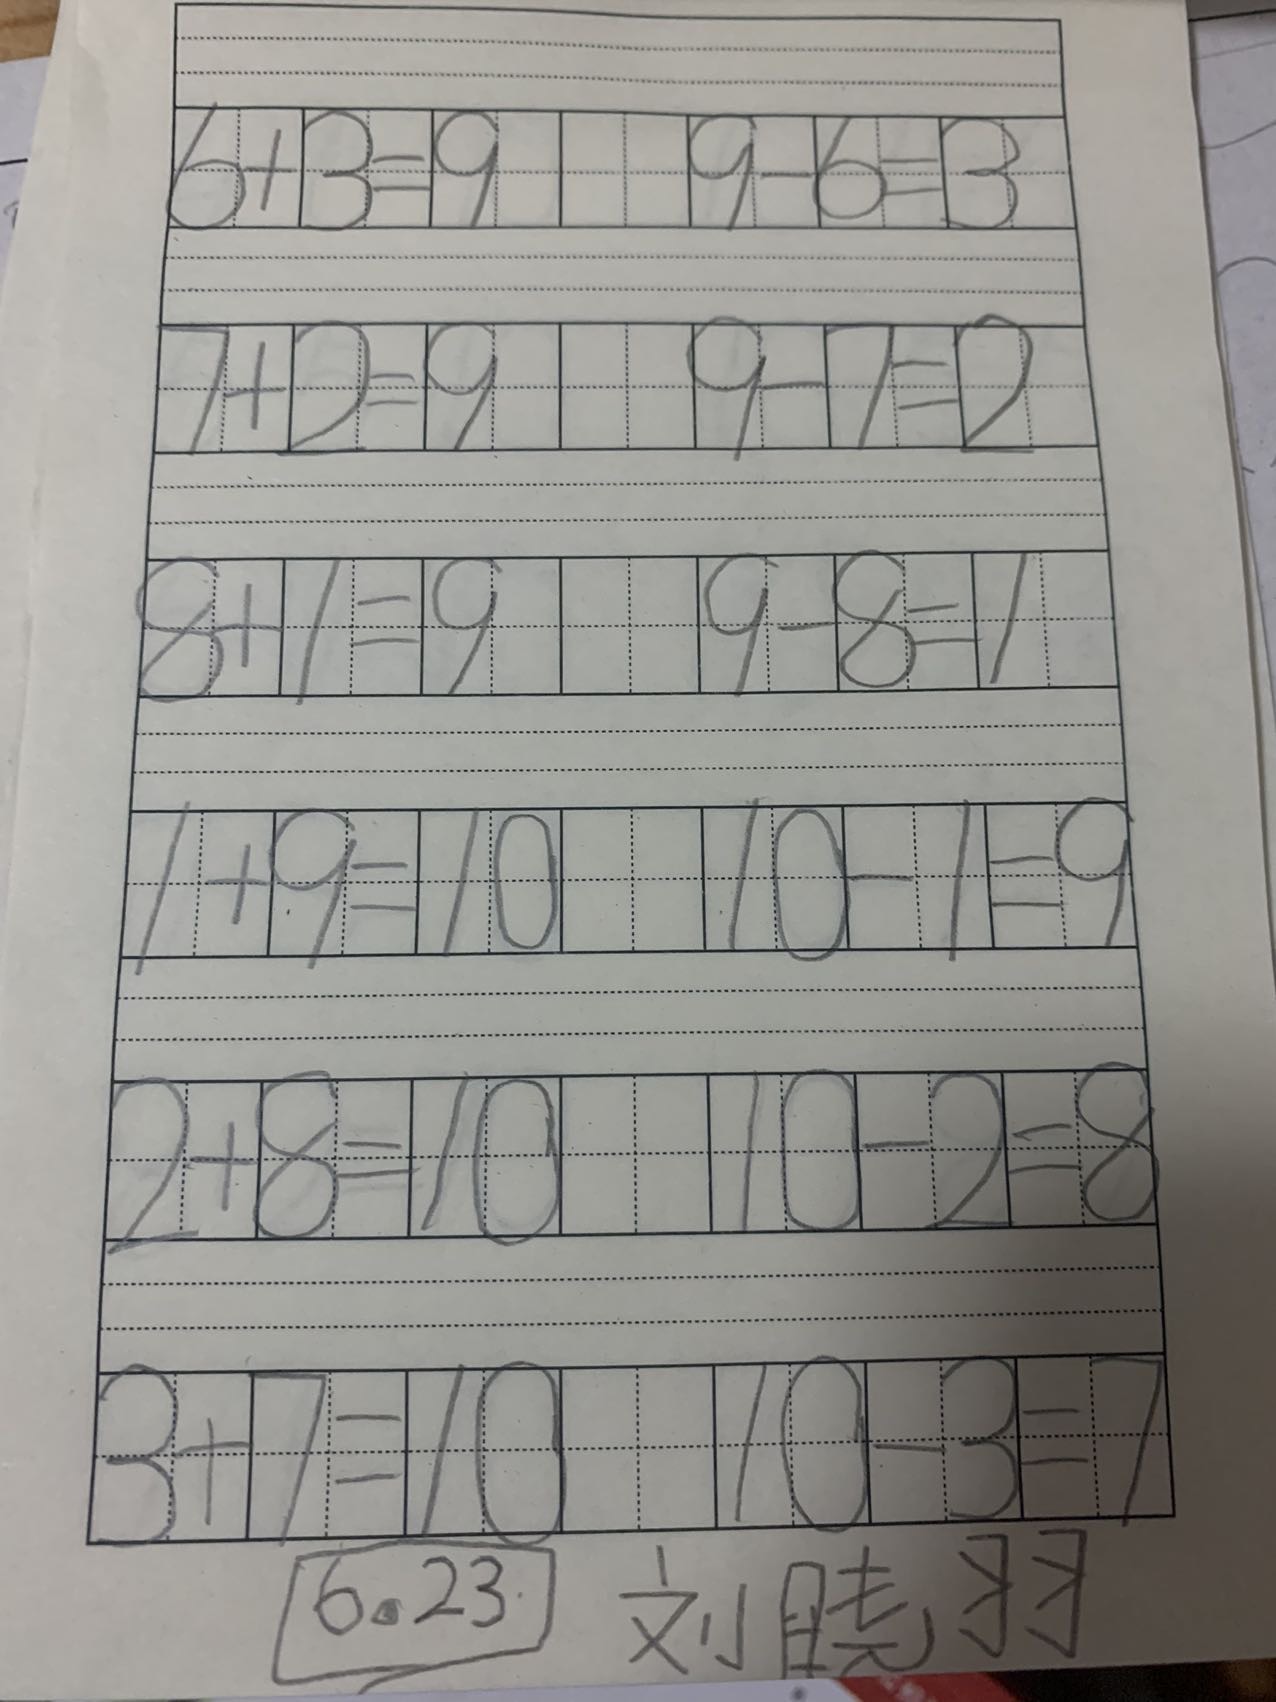 6+3=9 9-6=3
7+2=9 9-7=2
8+1=9 9-8=1
1+9=10 10-1=9
2+8=10 10-2=8
3+7=10 10-3=7
6.23 刘 羽